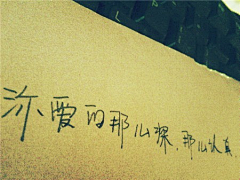 你爱的那么深、那么认真